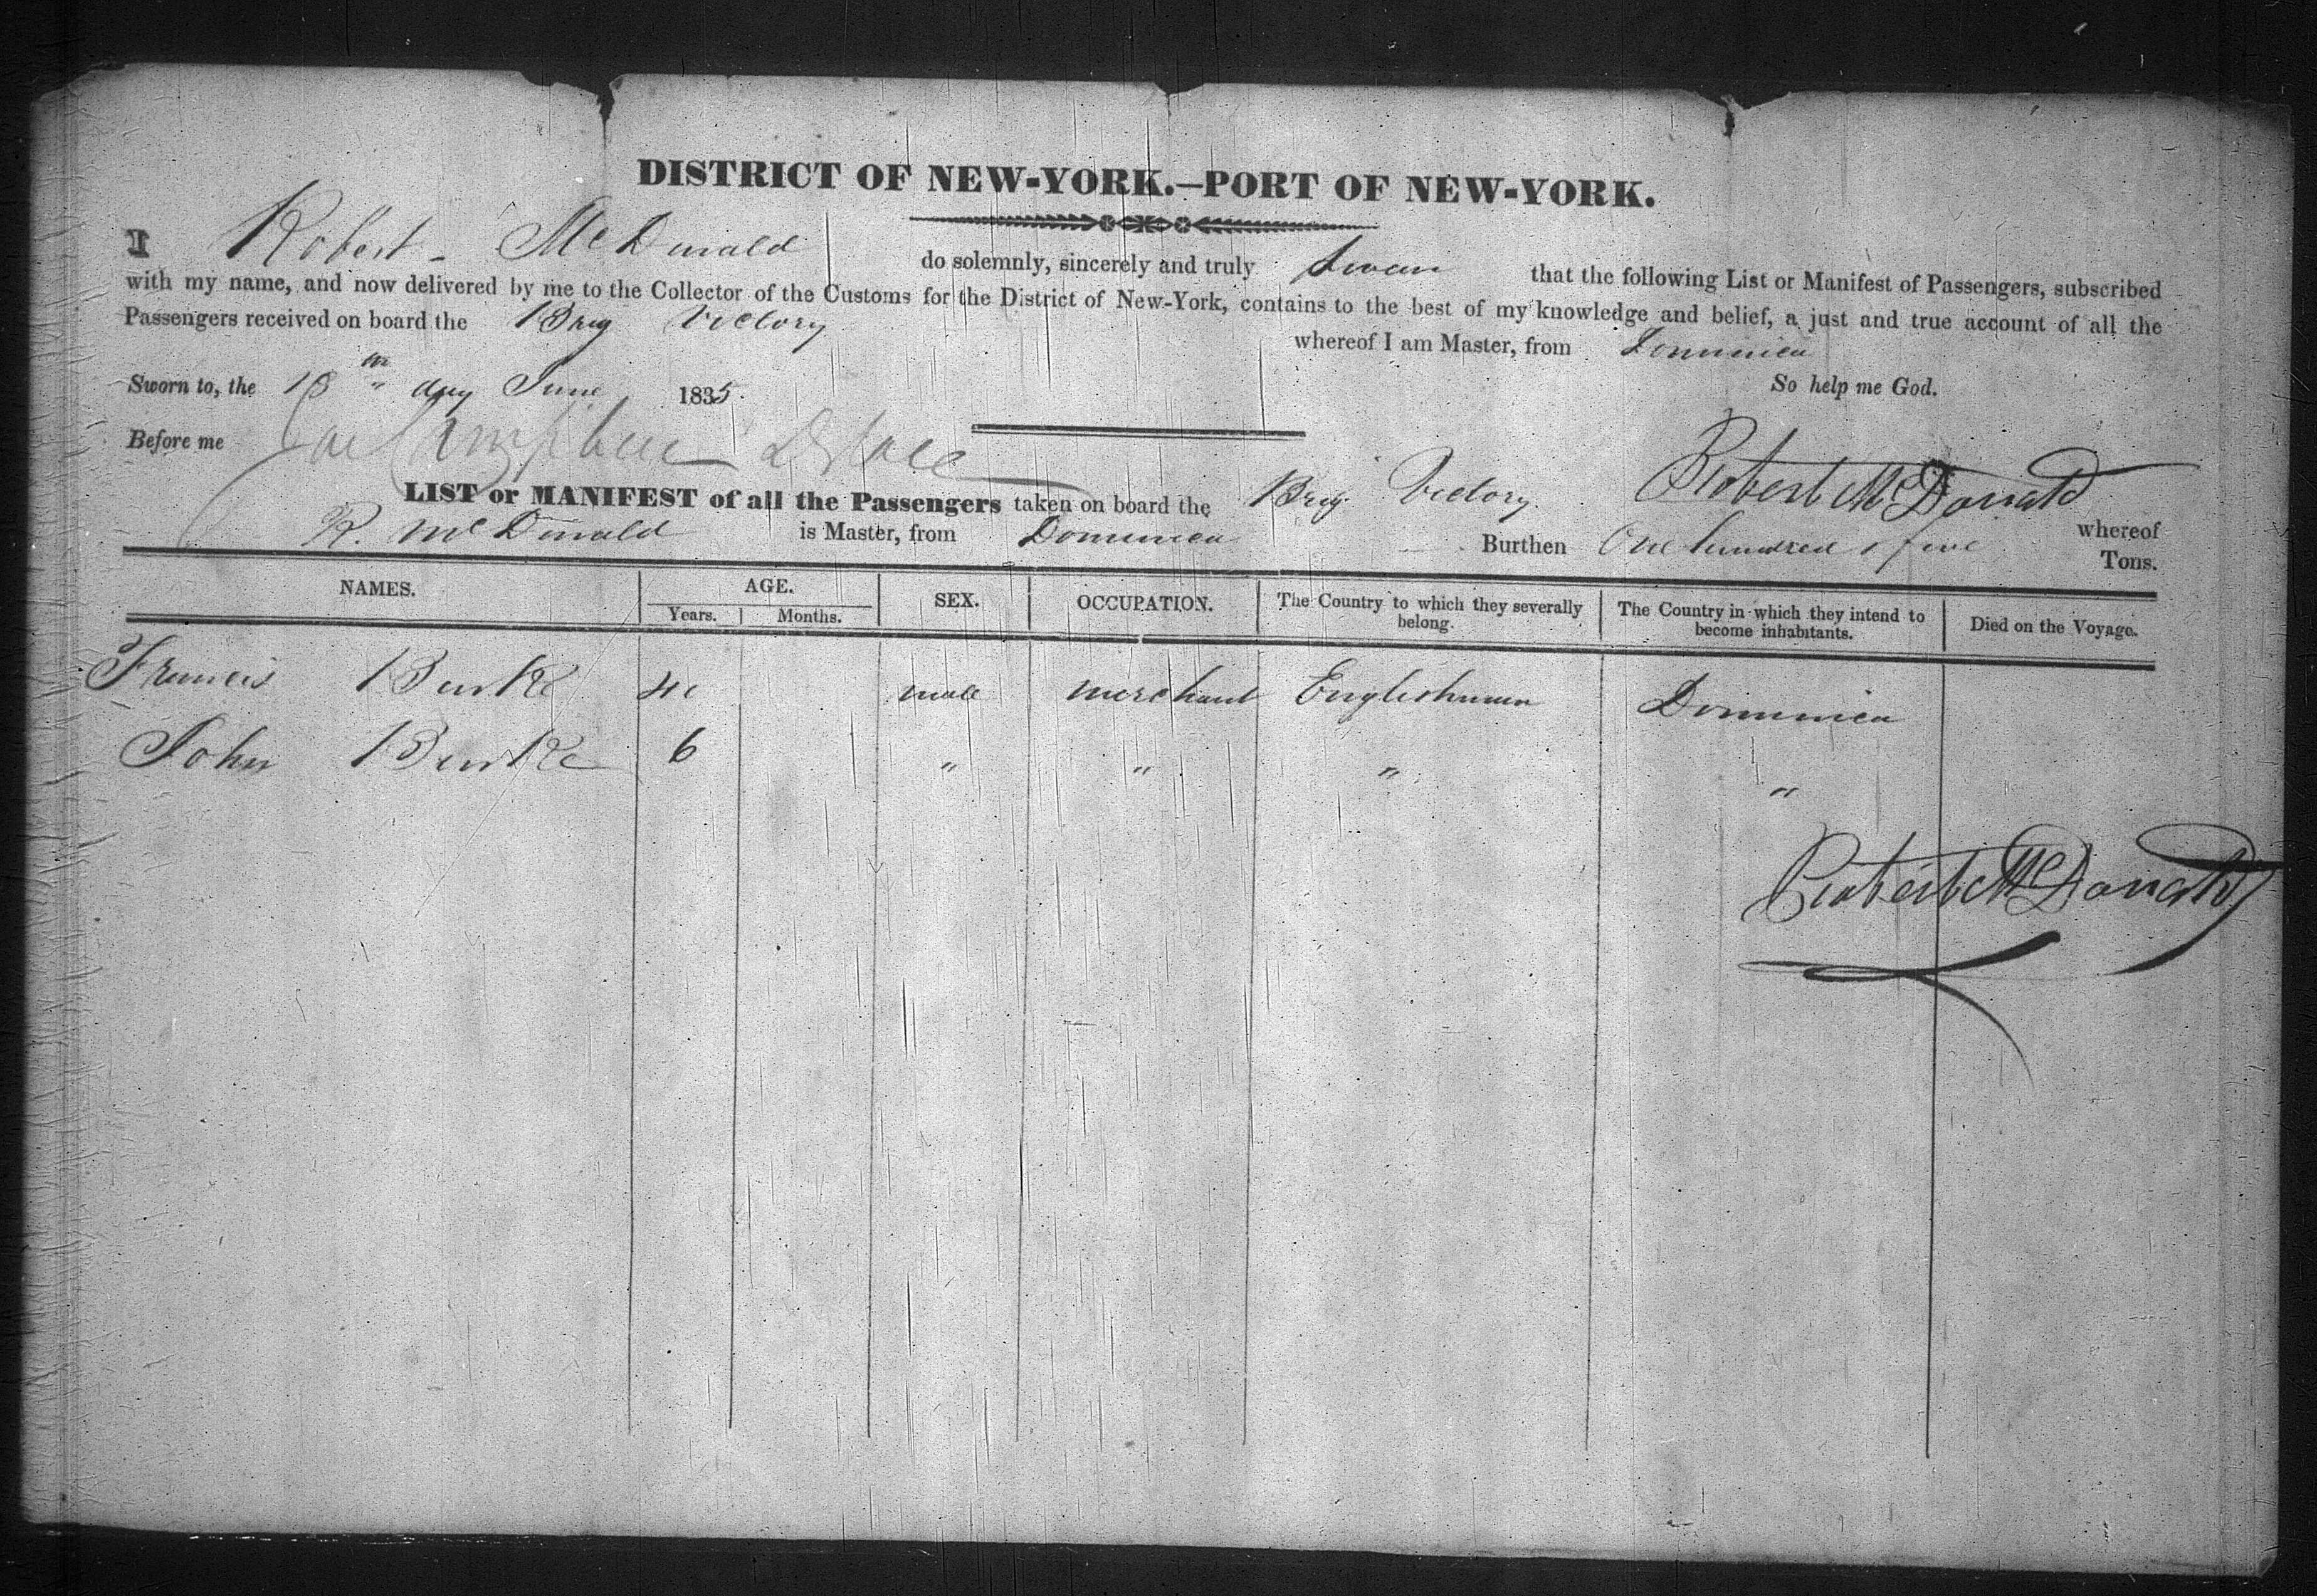 DISTRICT OF NEW-YORK.—PORT OF NEW-YORK.
I Robert McDonald do solemnly, sincerely and truly Swear that the following List or Manifest of Passengers, subscribed
with my name, and now delivered by me to the Collector of the Customs for the District of New-York, contains to the best of my knowledge and belief, a just and true account of all the
Passengers received on board the Brig Victory whereof I am Master, from Dominica
Sworn to, the day June 1835. So help me God.
Before me
Robert McDonald
LIST or MANIFEST of all the Passengers taken on board the Brig Victory whereof
R. McDonald is Master, from Dominica Burthen One hundred & five Tons.
NAMES. AGE. SEX. OCCUPATION. The Country to which they severally belong. The Country in which they intend to become inhabitants. Died on the Voyage.
Years. Months.
Francis Burke male merchant Englishman Dominica
John Burke 6 " " " "
Robert McDonald